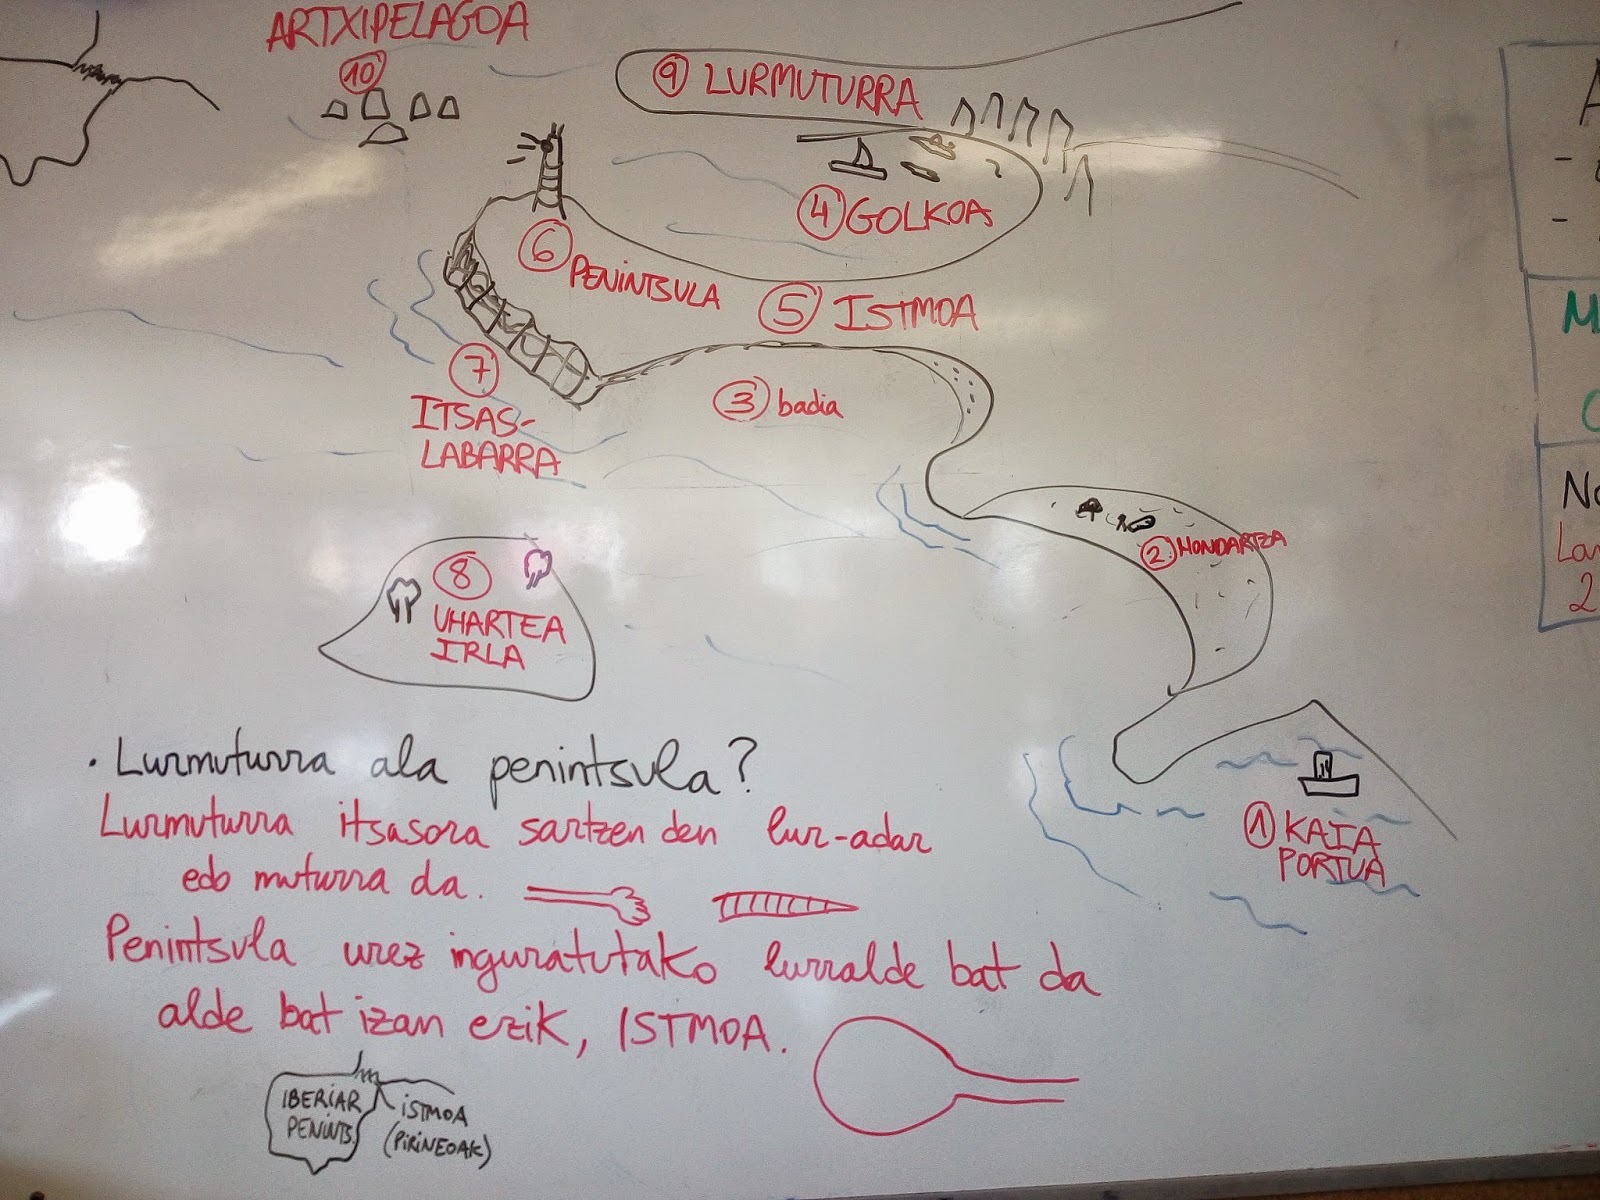 ARTXIPELAGOA
10
9 LURMUTURRA
4 GOLKOA
6 PENINTSULA
5 ISTMOA
7
ITSAS-
LABARRA
3 badia
2 HONDARTZA
8
UHARTEA
IRLA
1 KAIA
PORTUA
· Lurmuturra ala penintsula?
Lurmuturra itsasora sartzen den lur-adar
edo muturra da.
Penintsula urez inguratutako lurralde bat da
alde bat izan ezik, ISTMOA.
IBERIAR
PENINTS.
ISTMOA
(PIRINEOAK)
2